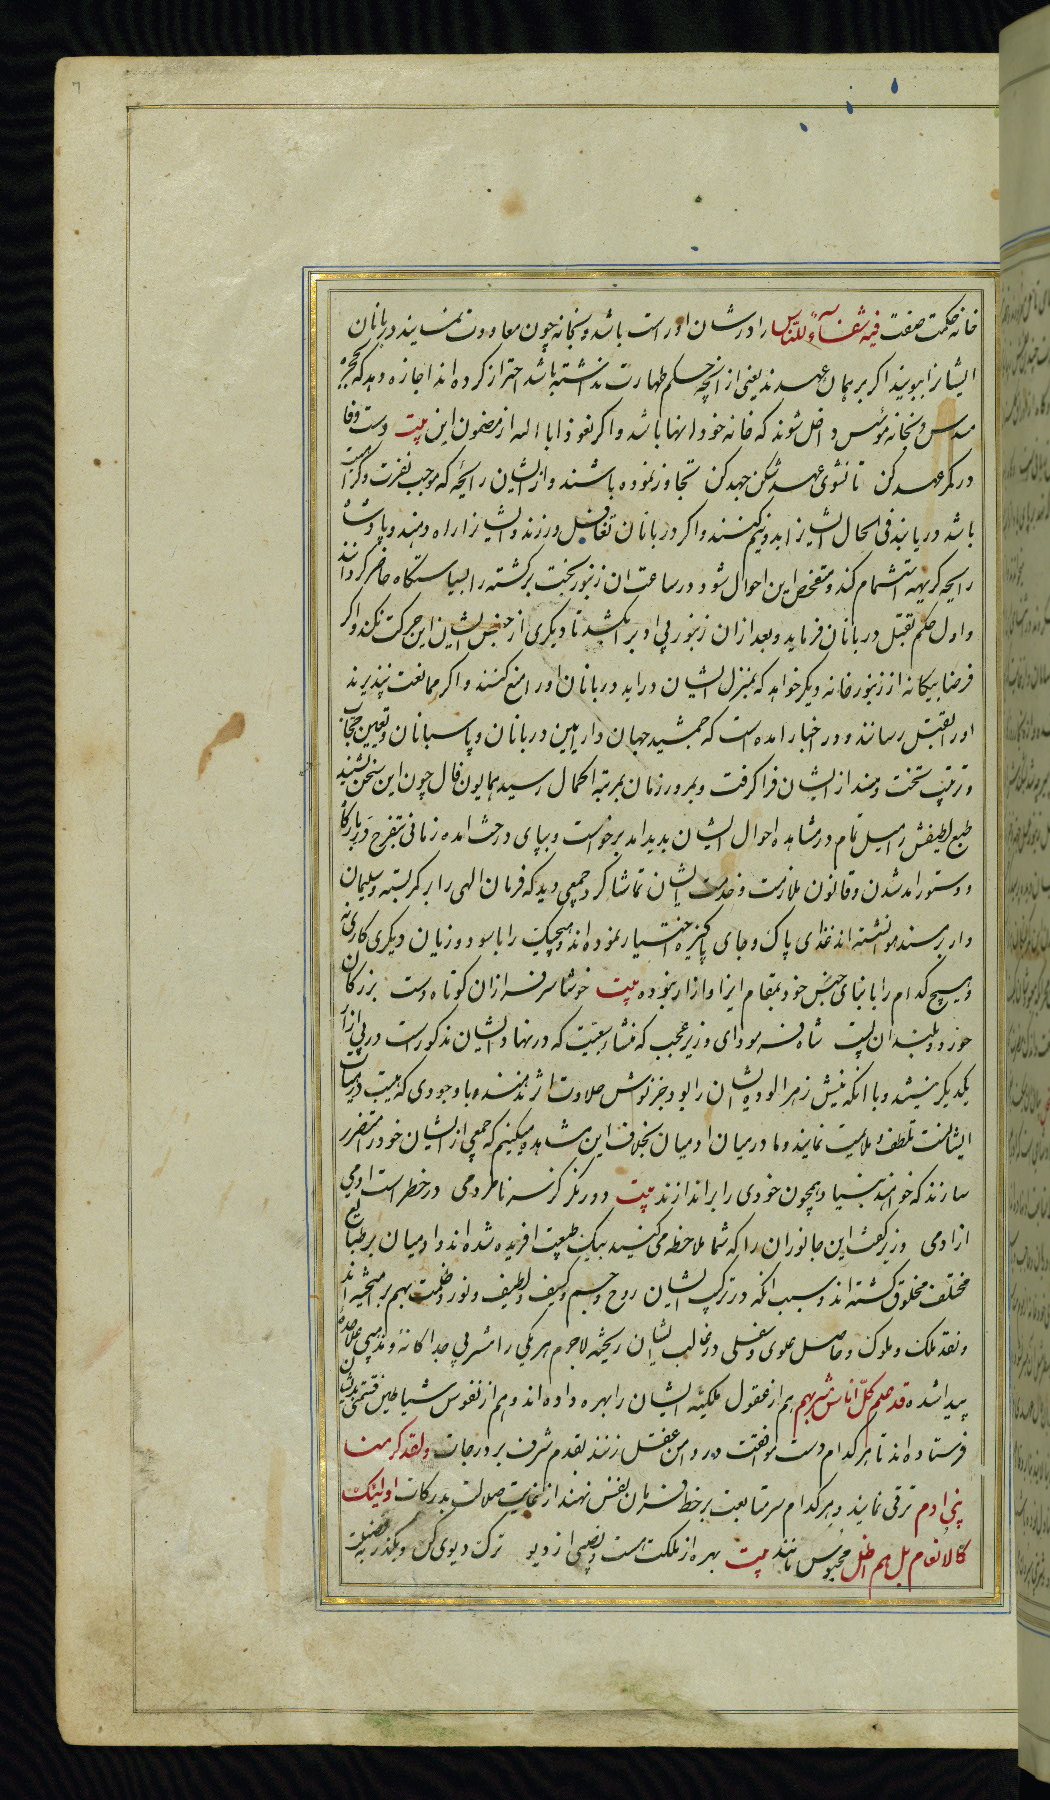 خانه حکمت صفت فیه شفاءٌ للنّاس را در شان او راست باشد و بخانه چون معاودت نمایند دربانان
ایشانرا ببویند اگر بر همان عهدند یعنی از آنچه حکم طهارت نداشته باشد احتراز کرده‌اند اجازه دهد که بحجره
مسدس و بخانه مونس داخل شوند که خانه خود آنها باشد و اگر نعوذا بالله از مضمون این بیت دست وفا
در کمر عهد کن تا نشوی عهد شکن جهد کن تجاوز نموده باشند و از ایشان رایحه که موجب نفرت و کراهیت
باشد دریابند فی الحال ایشانرا بدو نیم کنند و اگر دربانان تغافل ورزند و ایشانرا راه دهند و پادشاه
رایحه کریهه استشمام کند و متفحص این احوال شود در ساعت آن زنبور بخت برگشته را بسیاستگاه حاضر گردانند
و اول حکم بقتل دربانان فرماید و بعد از آن زنبور بی ادب را بکشد تا دیگری از جنس ایشان این حرکت نکند و اگر
فرضا بیگانه از زنبور خانه دیگر خواهد که بمنزل ایشان درآید دربانان او را منع کنند و اگر ممانعت نپذیرند
او را بقتل رسانند و در اخبار آمده است که جمشید جهان دار آیین دربانان و پاسبانان و تعیین حجاب
و ترتیب تخت و مسند از ایشان فرا گرفت و بمرور زمان بمرتبه کمال رسید همایون فال چون این سخن شنید
طبع لطیفش را میل تمام در مشاهده احوال ایشان پدید آمد برخواست و بپای درخت آمده زمانی بتفرج دربارگاه
و دستور آمد شدن و قانون ملازمت و خدمت ایشان تماشا کرد جمعی دید که فرمان الهی را بر کمر بسته و سلیمان
وار بر مسند هوا نشسته‌اند غذای پاک و جای پاکیزه اختیار نموده‌اند و هیچیک را با سود و زیان دیگری کاری نه
و هیچ کدام را با ابنای جنس خود بمقام ایذا و آزار نبوده بیت خوشا سرفرازان کوتاه دست بزرگان
خرد و بلندان پست شاه فرمود ای وزیر عجب که منشاء سبعیت که در نهاد ایشان مذکورست در پی آزار
یکدیگر نیستند و با آنکه نیش زهر آلود ایشان را بود جز نوش حلاوت اثر ندهند و با وجودی که هیبت در میان
ایشانست تلطف و ملایمت نمایند و ما در میان آدمیان بخلاف این مشاهده میکنیم که جمعی از ایشان خود را متضرر
سازند که خواهند بنیاد همچون خودی را براندازند بیت دور نگر کز سر نامردمی در خطر است آدمی
از آدمی وزیر گفت این جانوران را که شما ملاحظه می کنید بیک طبیعت آفریده شده‌اند و آدمیان بر طبایع
مختلف مخلوق گشته‌اند و بسبب آنکه در ترکیب ایشان روح و جسم و کثیف و لطیف و نور و ظلمت بهم برآمیخته‌اند
و نقد ملک و ملوک و حاصل علوی و سفلی در قالب ایشان ریخته لاجرم هر یکی را مشربی جداگانه و مذهبی علاحده
پیدا شده قد علم کلّ اناس مشربهم هم از عقول ملکیه ایشان را بهره داده‌اند و هم از نفوس شیاطین قسمتی بدیشان
فرستاده‌اند تا هر کدام دست موافقت در دامن عقل زنند بقدم شرف بر درجات ولقد کرمنا
بنی آدم ترقی نمایند و هر کدام سر متابعت بر خط فرمان نفس نهند از غایت ضلالت بدرکات اولئک
کالانعام بل هم اضلّ محبوس مانند بیت بهره از ملکت هست و نصیبی از دیو ترک دیوی کن و بگذر بفضیلت